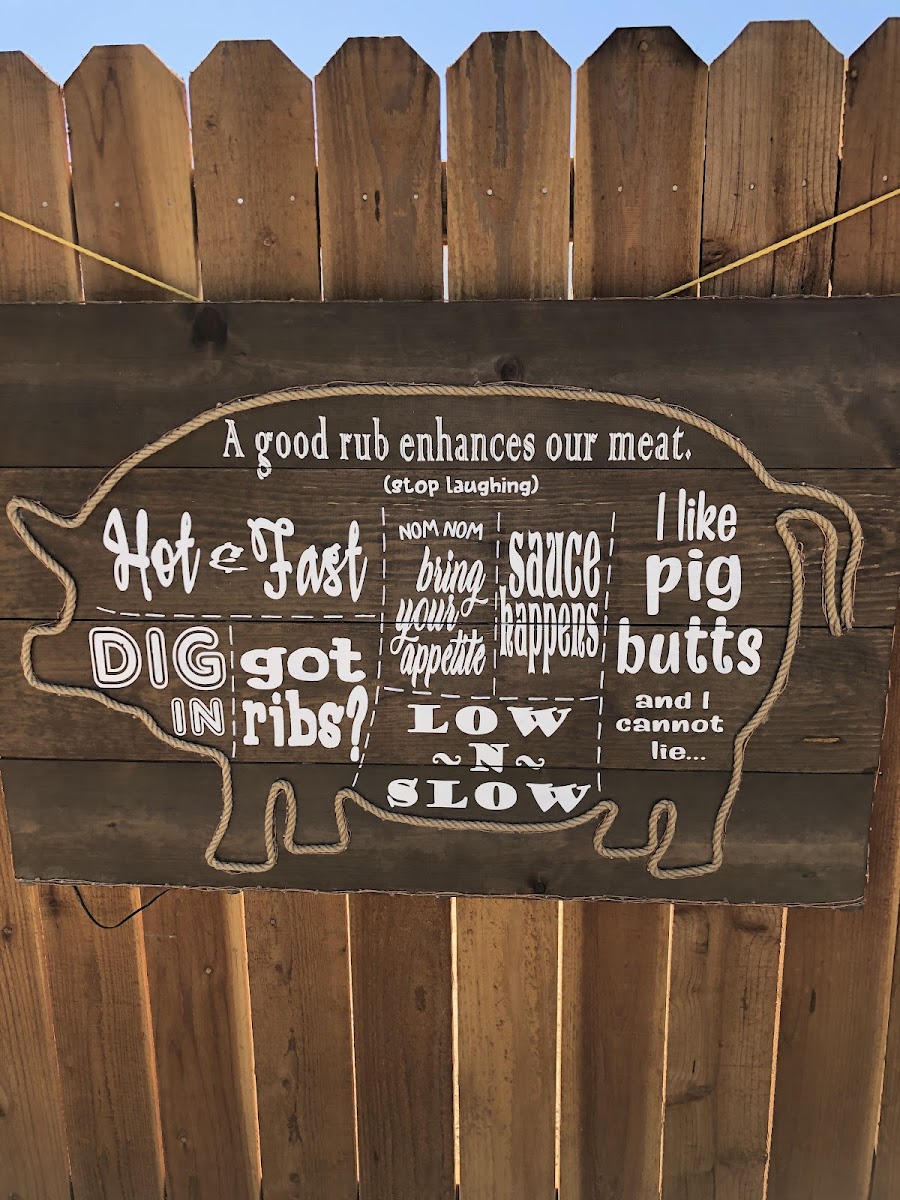 A good rub enhances our meat.
(stop laughing)
Hot & Fast
DIG
IN
got
ribs?
NOM NOM
bring
your
appetite
sauce
happens
LOW
~N~
SLOW
I like
pig
butts
and I
cannot
lie...